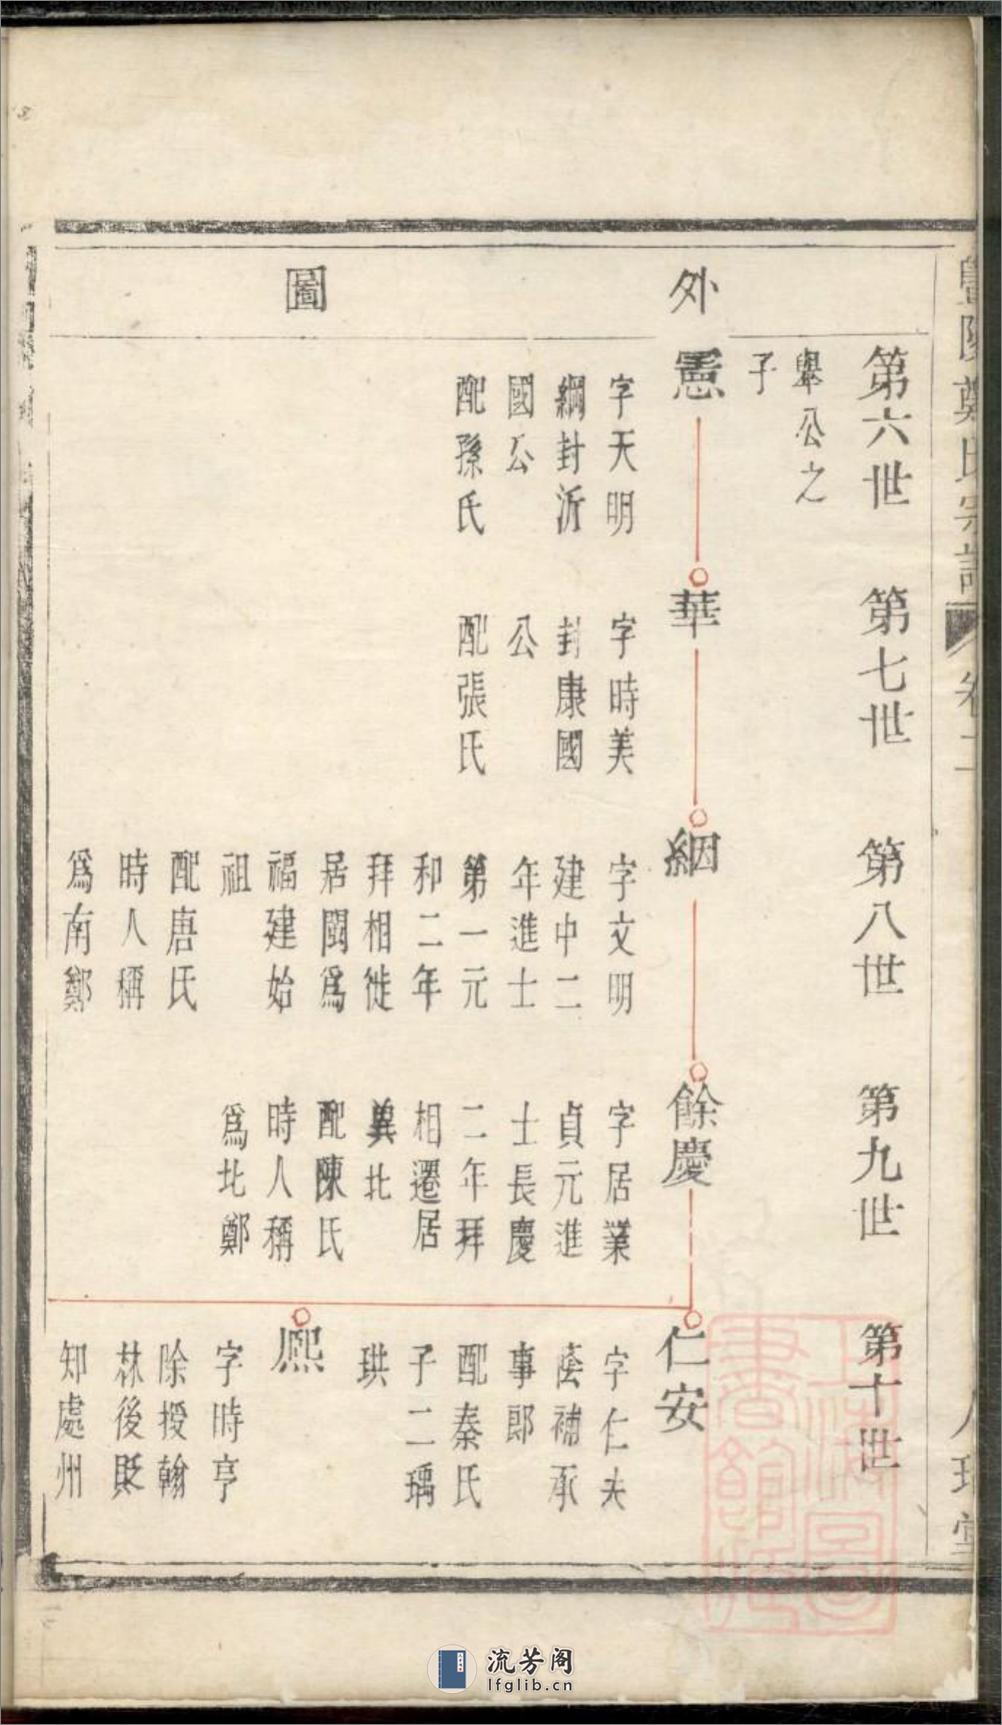 外
圖
第六世
第七世
第八世
第九世
第十世
舉公之
子
憲
字天明
綱封沂
國公
配孫氏
華
字時美
封康國
公
配張氏
絪
字文明
建中二
年進士
第一元
和二年
拜相徙
居閩爲
福建始
祖
配唐氏
時人稱
爲南鄭
餘慶
字居業
貞元進
士長慶
二年拜
相遷居
冀北
配陳氏
時人稱
爲北鄭
仁安
字仁夫
蔭補承
事郎
配秦氏
子二瑀
珙
熙
字時亨
除授翰
林後貶
知處州
暨陽鄭氏宗譜
卷二
上海圖書館藏
流芳阁
lfglib.cn